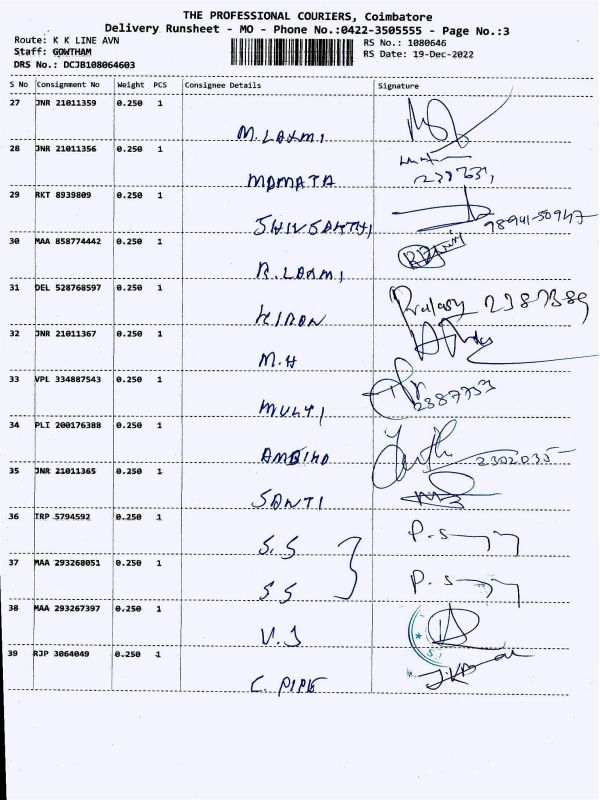 THE PROFESSIONAL COURIERS, Coimbatore
Delivery Runsheet - MO - Phone No.:0422-3505555 - Page No.:3
Route: K K LINE AVN
RS No.: 1080646
Staff: GOWTHAM
RS Date: 19-Dec-2022
DRS No.: DCJB108064603
S No Consignment No Weight PCS Consignee Details Signature
27 JNR 21011359 0.250 1 M. LAXMI
28 JNR 21011356 0.250 1 MAMATA
29 RKT 8939809 0.250 1 SHIVSAKTHI 98941-50947
30 MAA 858774442 0.250 1 R. LAXMI
31 DEL 528768597 0.250 1 KIRAN 2387389
32 JNR 21011367 0.250 1 M.H
33 VPL 334887543 0.250 1 MULTI 2387733
34 PLI 200176388 0.250 1 AMBIKA 2302035
35 JNR 21011365 0.250 1 SANTI
36 TRP 5794592 0.250 1 S.S
37 MAA 293268051 0.250 1 S S
38 MAA 293267397 0.250 1 V.J
39 RJP 3064049 0.250 1 C. PIPE